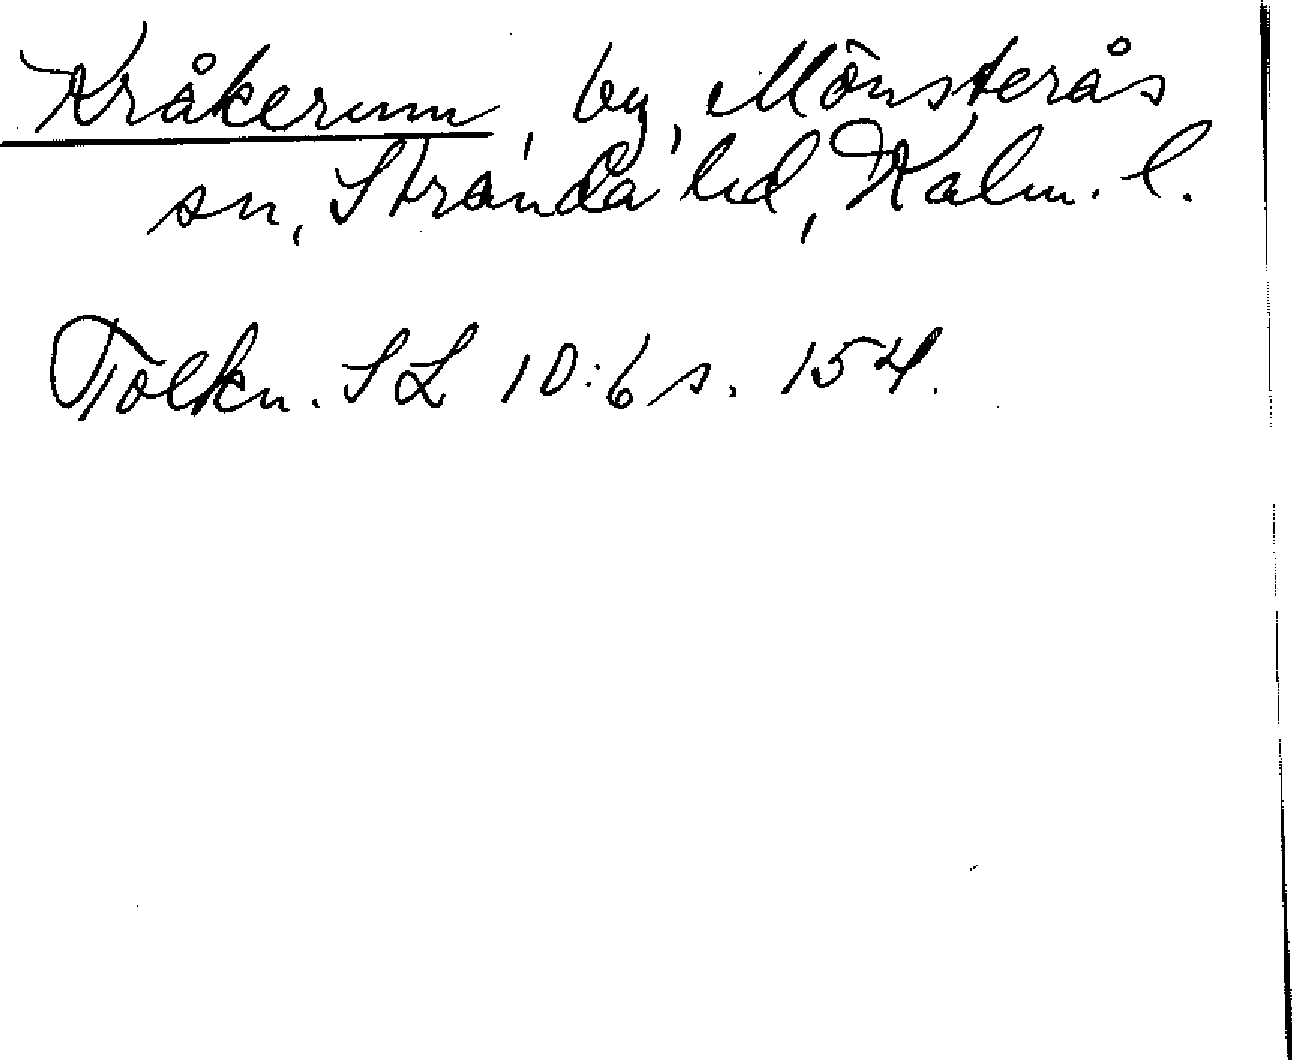 Kråkerum, by, Mönsterås
sn, Stranda hd, Kalm. l.
Tolkn. SL 10:6 s. 154.